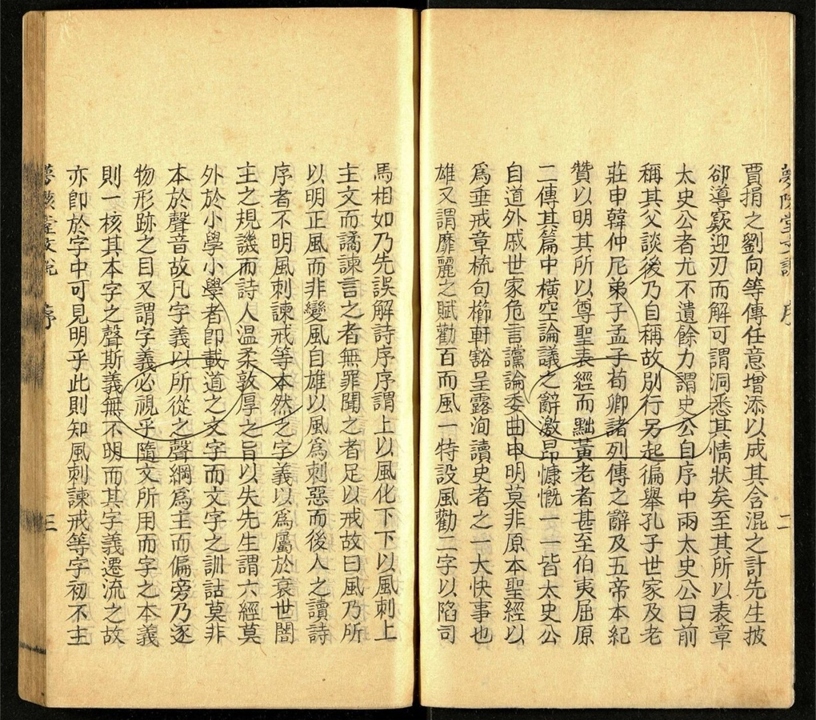 賈捐之劉向等傳任意增添以成其含混之計先生披
卻導窾迎刃而解可謂洞悉其情狀矣至其所以表章
太史公者尤不遺餘力謂史公自序中兩太史公曰前
稱其父談後乃自稱故別行另起徧舉孔子世家及老
莊申韓仲尼弟子孟子荀卿諸列傳之辭及五帝本紀
贊以明其所以尊聖表經而黜黃老者甚至伯夷屈原
二傳其篇中橫空論議之辭激昂慷慨一一皆太史公
自道外戚世家危言讜論委曲申明莫非原本聖經以
爲垂戒章梳句櫛軒豁呈露洵讀史者之一大快事也
雄又謂靡麗之賦勸百而風一特設風勸二字以陷司
馬相如乃先誤解詩序序謂上以風化下下以風刺上
主文而譎諫言之者無罪聞之者足以戒故曰風乃所
以明正風而非變風自雄以風爲刺惡而後人之讀詩
序者不明風刺諫戒等本然之字義以爲屬於衰世闇
主之規譏而詩人温柔敦厚之旨以失先生謂六經莫
外於小學小學者卽載道之文字而文字之訓詁莫非
本於聲音故凡字義以所從之聲綱爲主而偏旁乃逐
物形跡之目又謂字義必視乎隨文所用而字之本義
則一核其本字之聲斯義無不明而其字義遷流之故
亦卽於字中可見明乎此則知風刺諫戒等字初不主
序
三